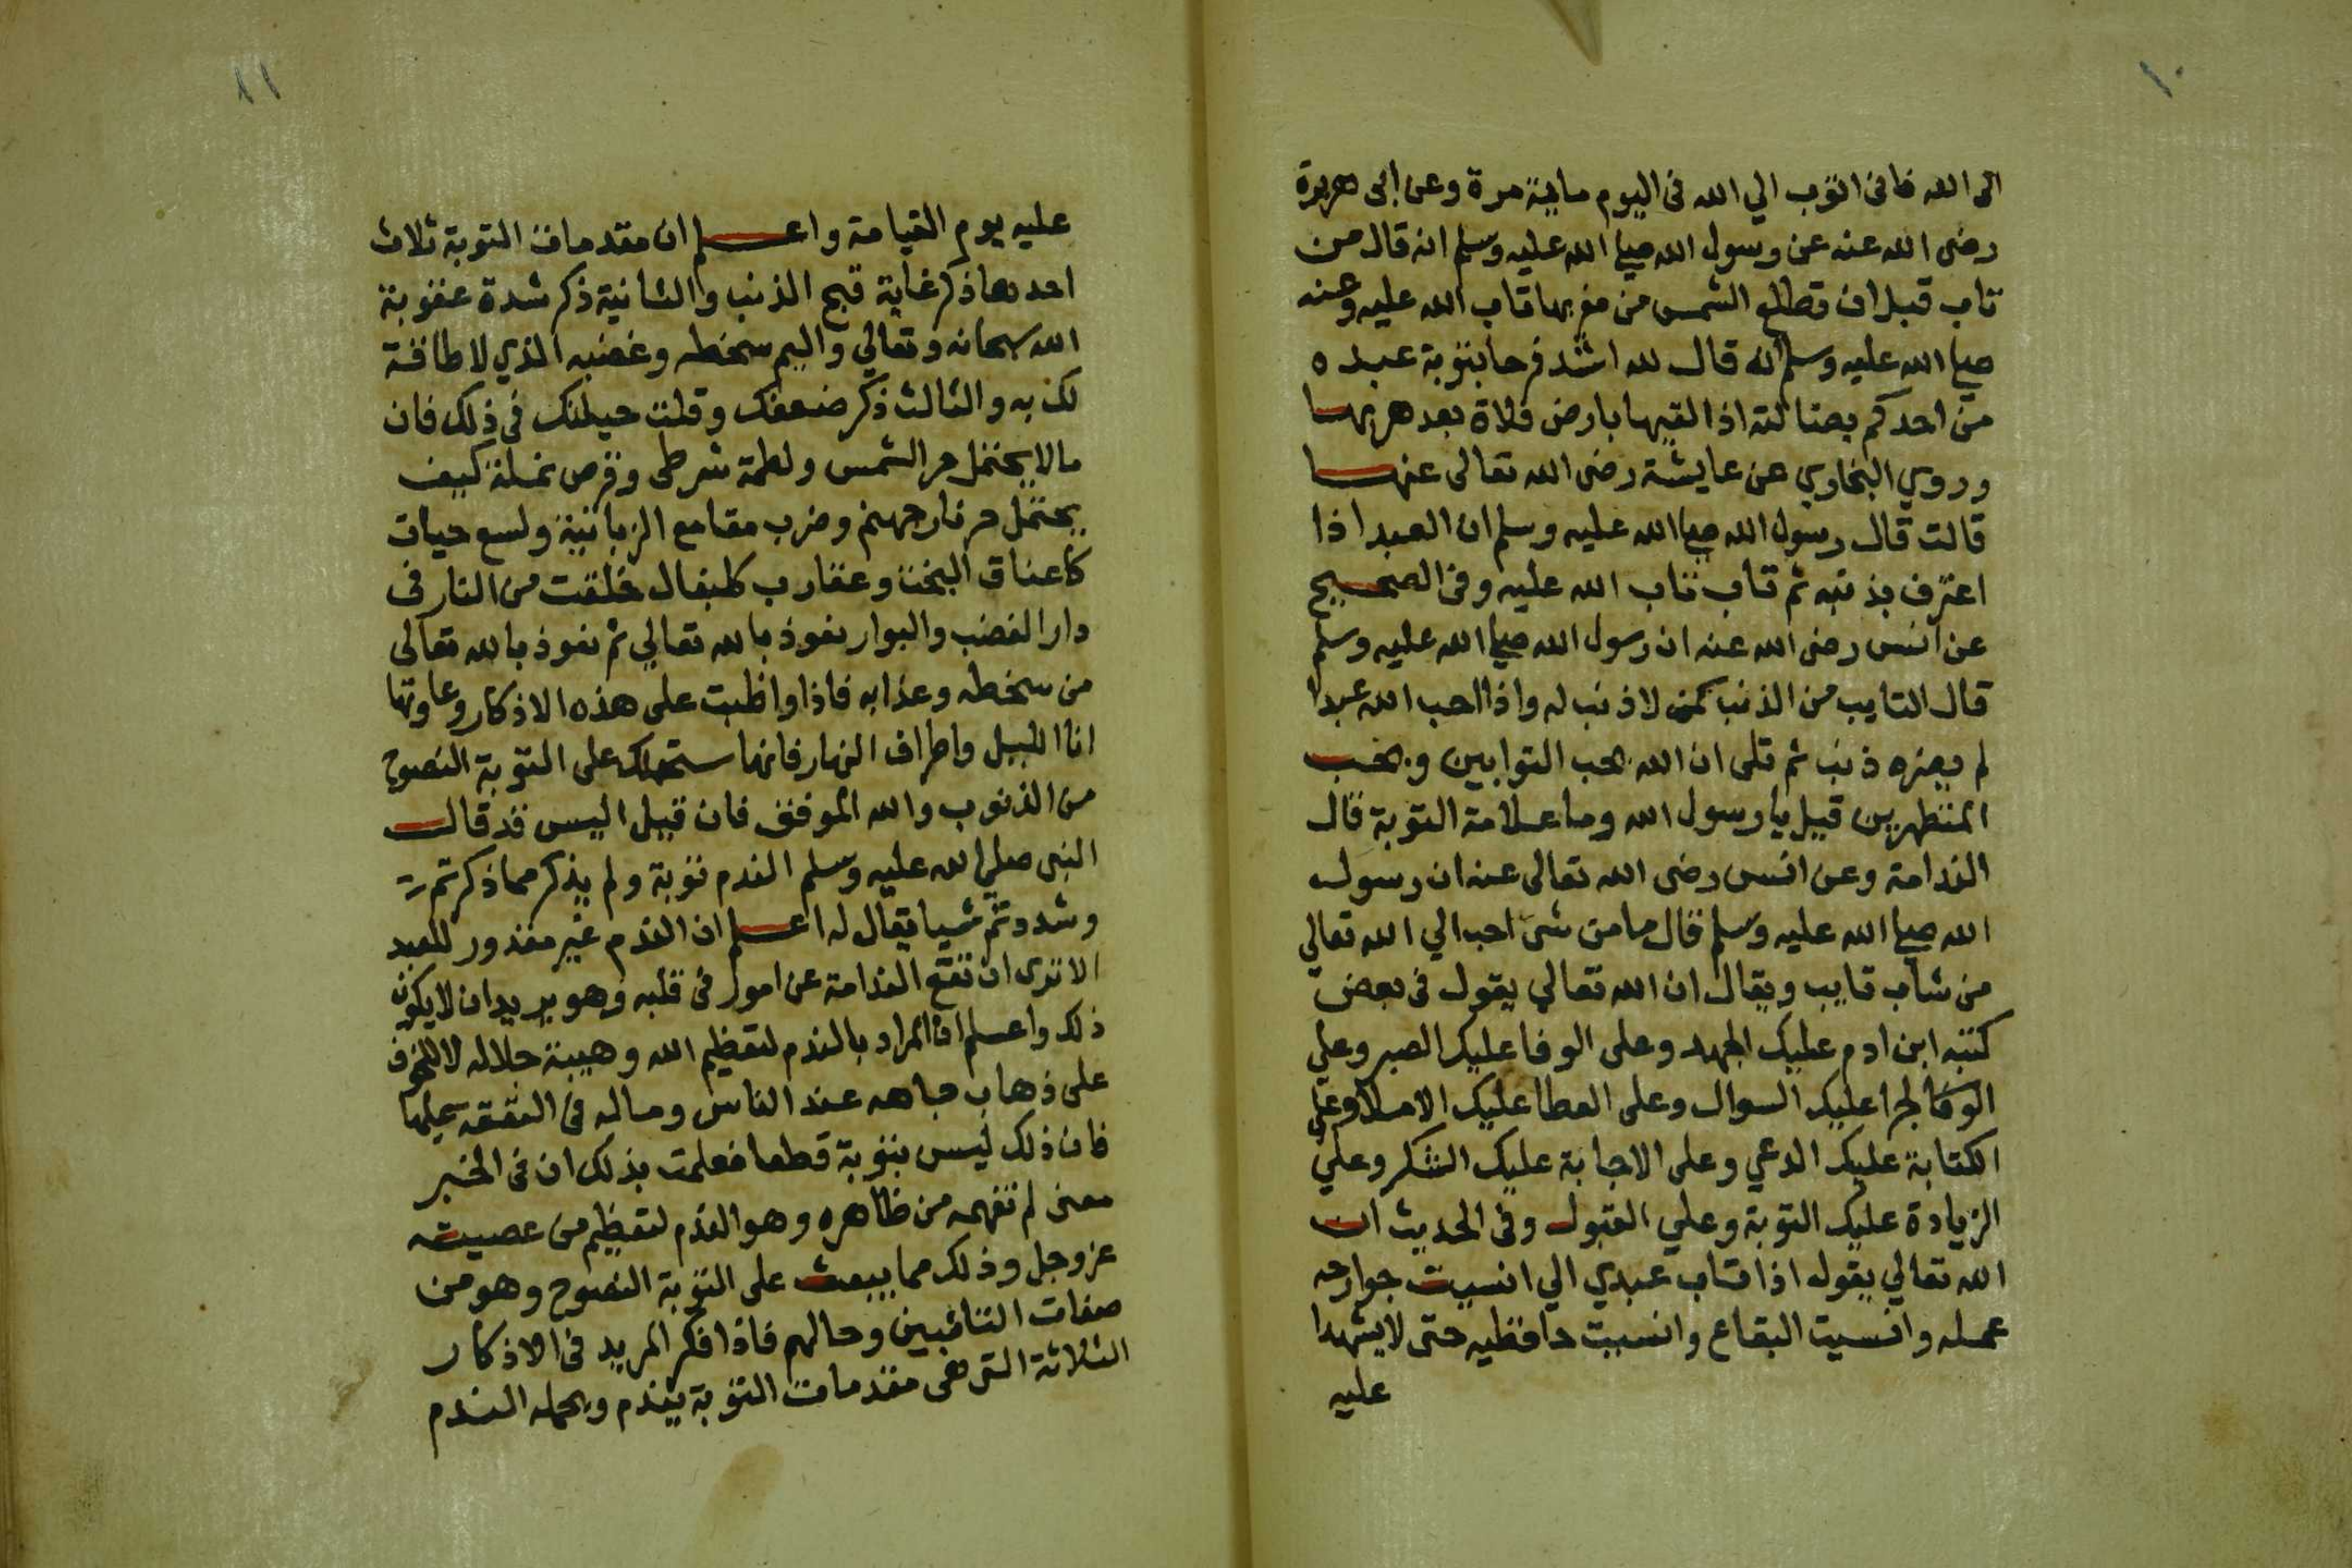 ١٠
الى الله فانى اتوب الي الله فى اليوم ماية مرة وعن ابى هريرة
رضى الله عنه عن رسول الله صلى الله عليه وسلم انه قال من
تاب قبل ان تطلع الشمس من مغربها تاب الله عليه وعنه
صلى الله عليه وسلم انه قال لله اشد فرحا بتوبة عبده
من احدكم بضالته اذا لقيها بارض فلاة بعد هربها
وروي البخاري عن عايشة رضى الله تعالى عنها
قالت قال رسول الله صلى الله عليه وسلم ان العبد اذا
اعترف بذنبه ثم تاب تاب الله عليه وفى الصحيح
عن انس رضى الله عنه ان رسول الله صلى الله عليه وسلم
قال التايب من الذنب كمن لا ذنب له واذا احب الله عبدا
لم يضره ذنب ثم تلى ان الله يحب التوابين ويحب
المتطهرين قيل يا رسول الله وما علامة التوبة قال
الندامة وعن انس رضى الله تعالى عنه ان رسول
الله صلى الله عليه وسلم قال ما من شئ احب الي الله تعالي
من شاب تايب ويقال ان الله تعالي يقول فى بعض
كتبه ابن ادم عليك الجهد وعلى الوفا عليك الصبر وعلي
الوفا لجزا عليك السوال وعلى العطا عليك الاملا وعلي
الكتابة عليك الدعي وعلى الاجابة عليك الشكر وعلي
الزيادة عليك التوبة وعلي القبول وفى الحديث ان
الله تعالي يقول اذا تاب عبدي الي انسيت جوارحه
عمله وانسيت البقاع وانسيت حافظيه حتى لا يشهدا
عليه
١١
عليه يوم القيامة واعلم ان مقدمات التوبة ثلاث
احدها ذكر غاية قبح الذنب والثانية ذكر شدة عقوبة
الله سبحانه وتعالي واليم سخطه وغضبه الذي لا طاقة
لك به والثالث ذكر ضعفك وقلت حيلتك في ذلك فان
ما لا يحتمل حر الشمس ولطمة شرطى وقرص نملة كيف
يحتمل حر نار جهنم وضرب مقامع الزبانية ولسع حيات
كاعناق البخت وعقارب كلبغال خلقت من النار فى
دار الغضب والبوار نعوذ بالله تعالي ثم نعوذ بالله تعالى
من سخطه وعذابه فاذا واظبت على هذه الاذكار وعاودتها
انا الليل واطراف النهار فانها ستحملك على التوبة النصوح
من الذنوب والله الموفق فان قيل اليس قد قال
النبى صلي الله عليه وسلم الندم توبة ولم يذكر مما ذكرتم
وشددتم شيا يقال له اعلم ان الندم غير مقدور للعبد
الا ترى ان تقع الندامة عن امور فى قلبه وهو يريد ان لا يكون
ذلك واعلم ان المراد بالندم لتعظيم الله وهيبة جلاله لا للخوف
على ذهاب جاهه عند الناس وماله فى النفقة عليها
فان ذلك ليس بتوبة قطعا فعلمت بذلك ان فى الخبر
معنى لم تفهمه من ظاهره وهو الندم لتعظيم من عصيته
عز وجل وذلك مما يبعث على التوبة النصوح وهو من
صفات التائبين وحالهم فاذا فكر المريد فى الاذكار
الثلاثة التى هى مقدمات التوبة يندم ويحمله الندم